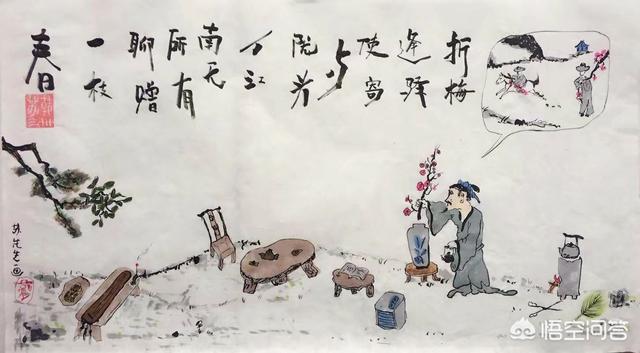 折梅
逢驿
使寄
与
陇头
人江
南无
所有
聊赠
一枝
春
悟空问答